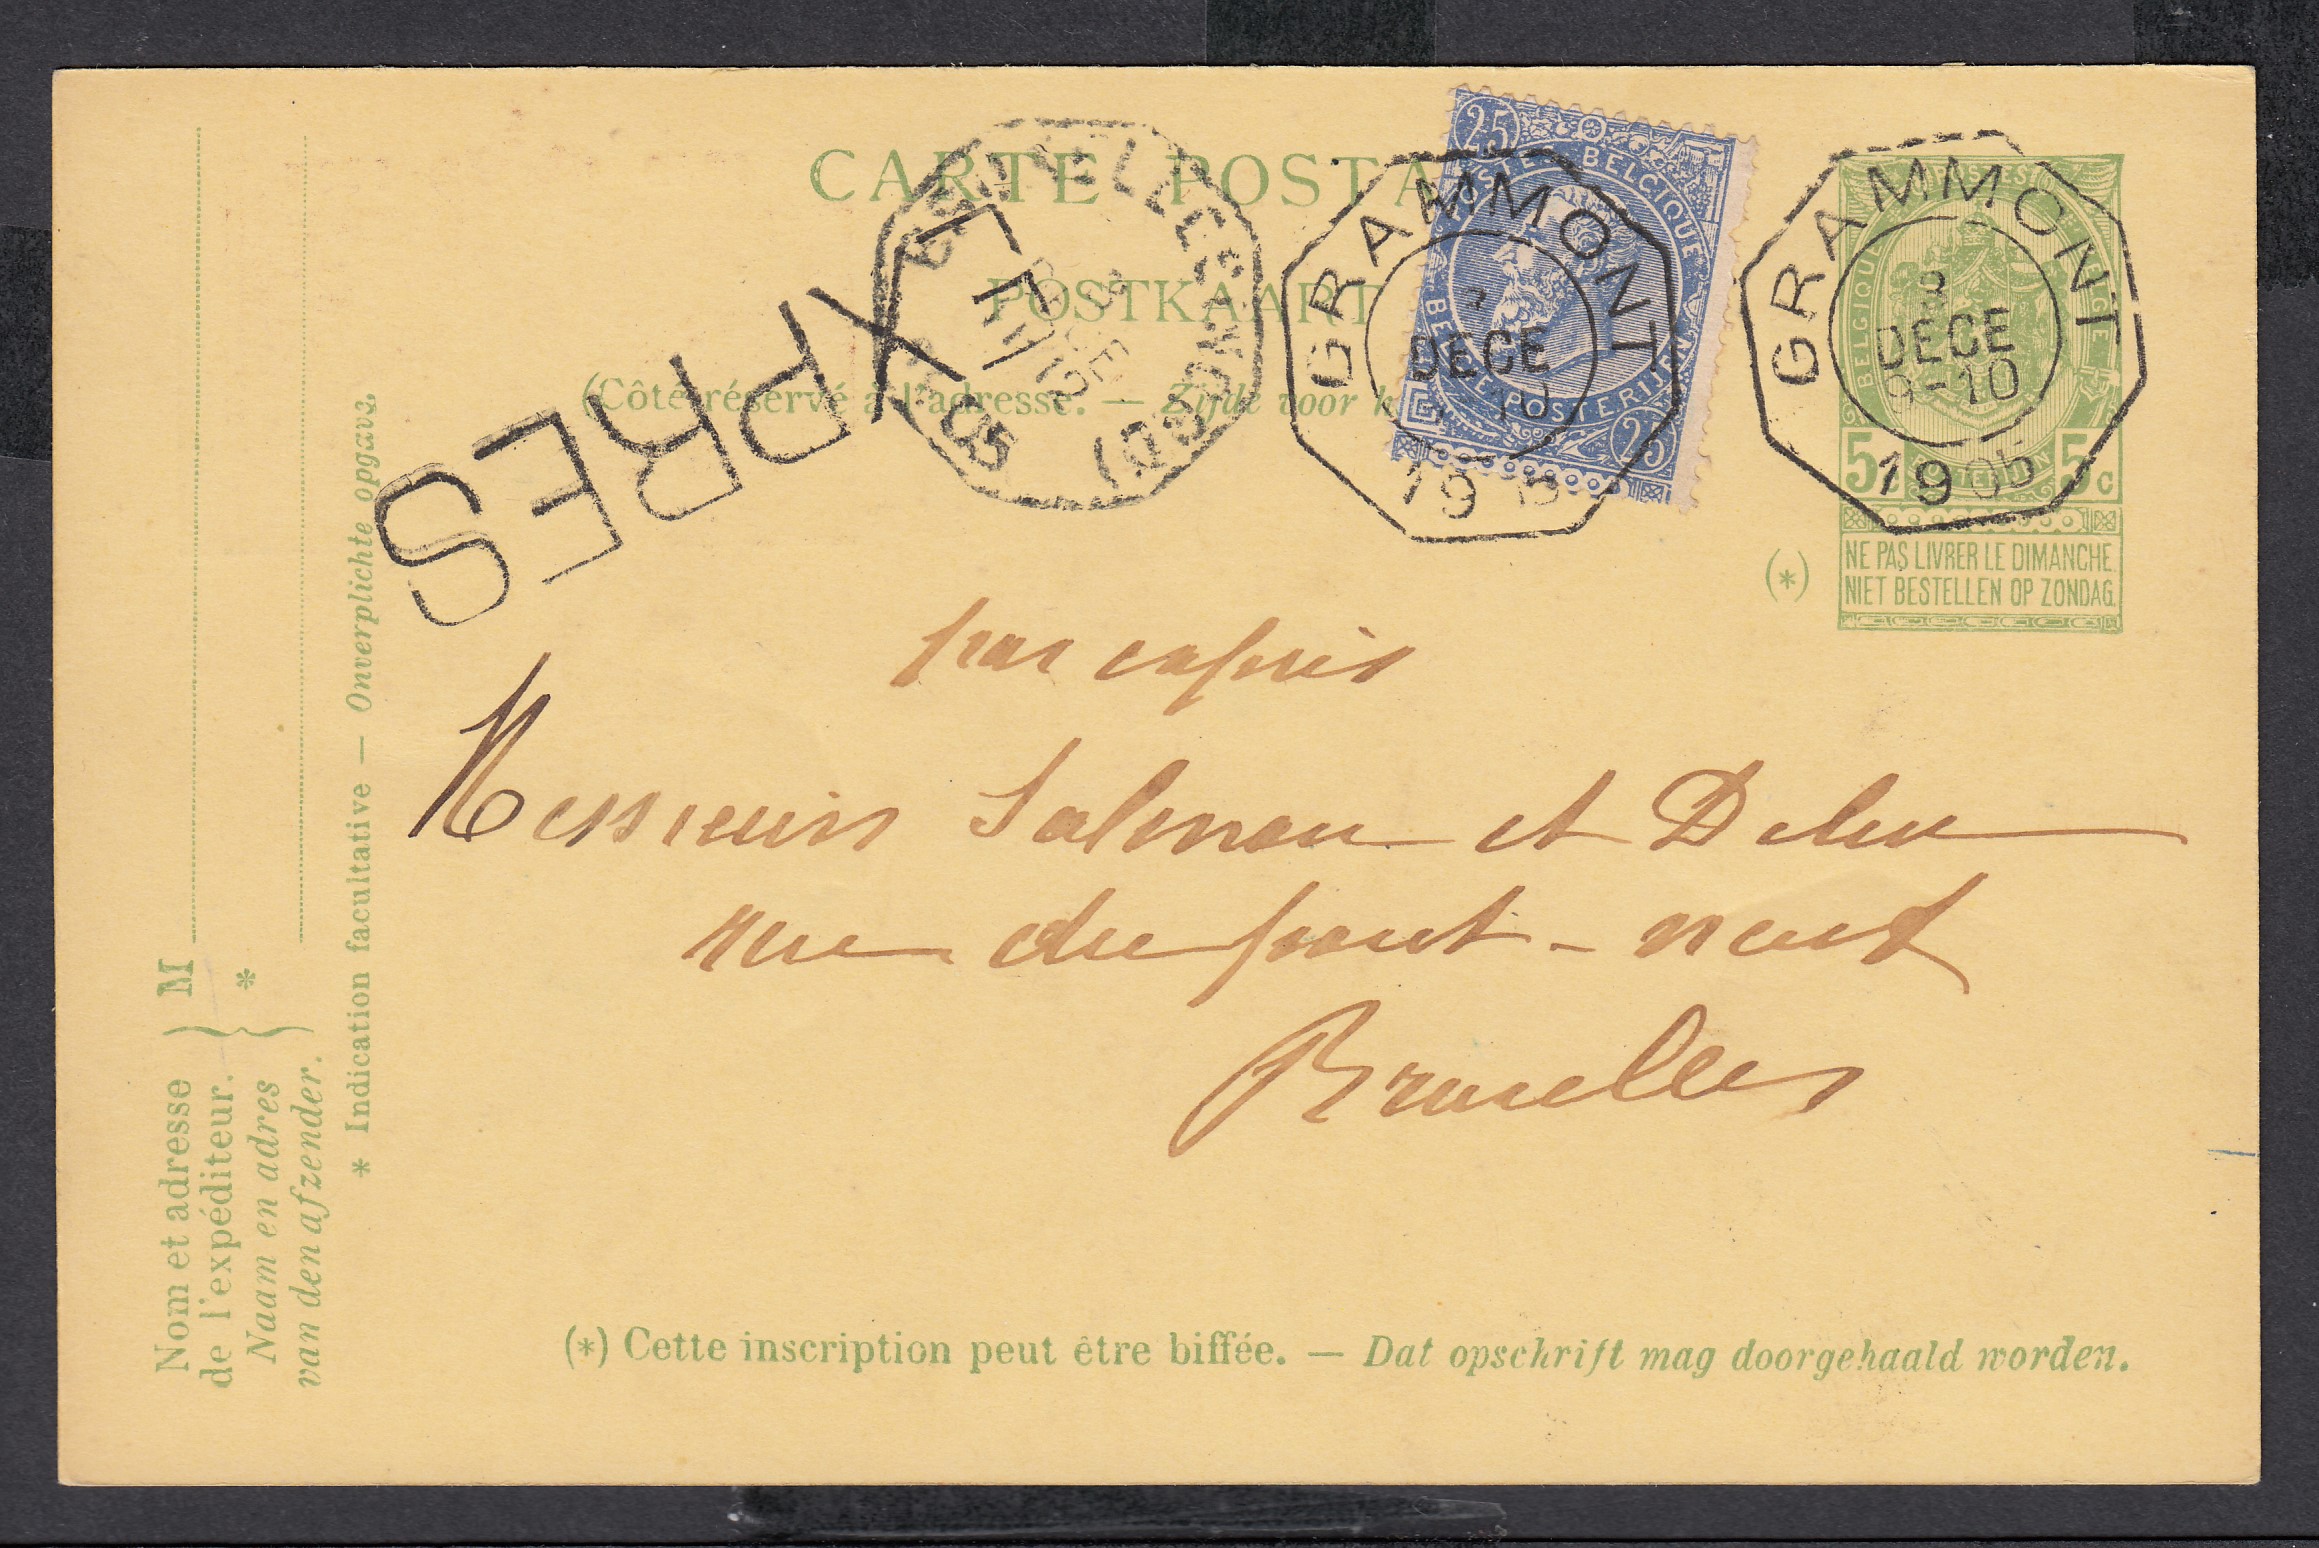 CARTE POSTA
POSTKAART
(Côté réservé à l'adresse. — Zijde voor
EXPRES
BRUXELLES
(QUARTIER
GRAMMONT
DECE
GRAMMONT
8
DECE
9-10
1905
25
POSTES BELGIQUE
BELGIE POSTERIJEN
25
POSTES
BELGIQUE
5 c
5 c
(*)
NE PAS LIVRER LE DIMANCHE.
NIET BESTELLEN OP ZONDAG.
par exprès
Messieurs Salmon et
rue du pont-neuf
Bruxelles
(*) Cette inscription peut être biffée. — Dat opschrift mag doorgehaald worden.
Nom et adresse
de l'expéditeur.
} M
Naam en adres
van den afzender.
{ *
* Indication facultative — Onverplichte opgave.